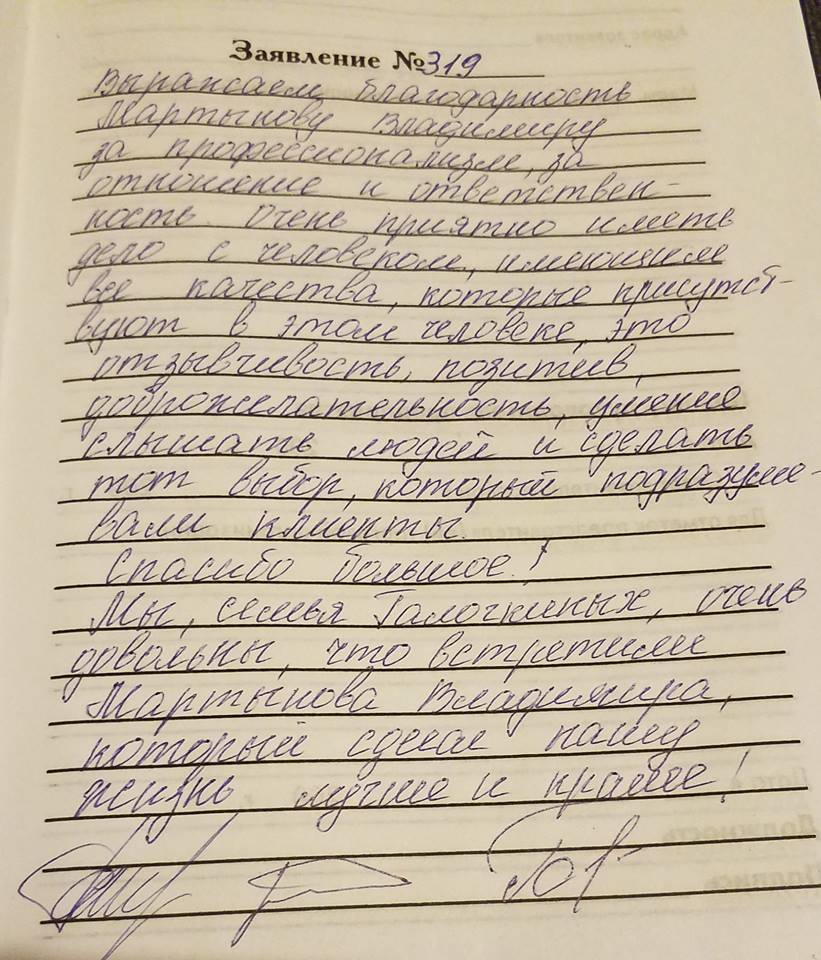 Заявление №319
Выражаем благодарность
Мартынову Владимиру
за профессионализм, за
отношение и ответствен-
ность. Очень приятно иметь
дело с человеком, имеющим
все качества, которые присутст-
вуют в этом человеке, это
отзывчивость, позитив,
доброжелательность, умение
слышать людей и сделать
тот выбор, который подразуме-
вали клиенты.
Спасибо большое!
Мы, семья Галочкиных, очень
довольны, что встретили
Мартынова Владимира,
который сделал нашу
жизнь лучше и краше!
Должность
Подпись